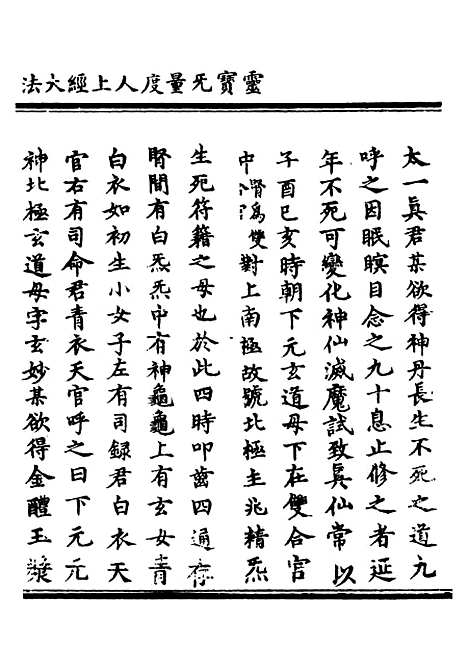 靈寶旡量度人上經大法
太一眞君某欲得神丹長生不死之道九
呼之因眠瞑目念之九十息止修之者延
年不死可變化神仙滅魔試致眞仙常以
子酉巳亥時朝下元玄道母下在雙合宮
中腎爲雙合宮對上南極故號北極主兆精炁
生死符籍之母也於此四時叩齒四通存
腎間有白炁炁中有神龜龜上有玄女青
白衣如初生小女子左有司録君白衣天
官右有司命君青衣天官呼之曰下元元
神北極玄道母字玄妙某欲得金醴玉漿